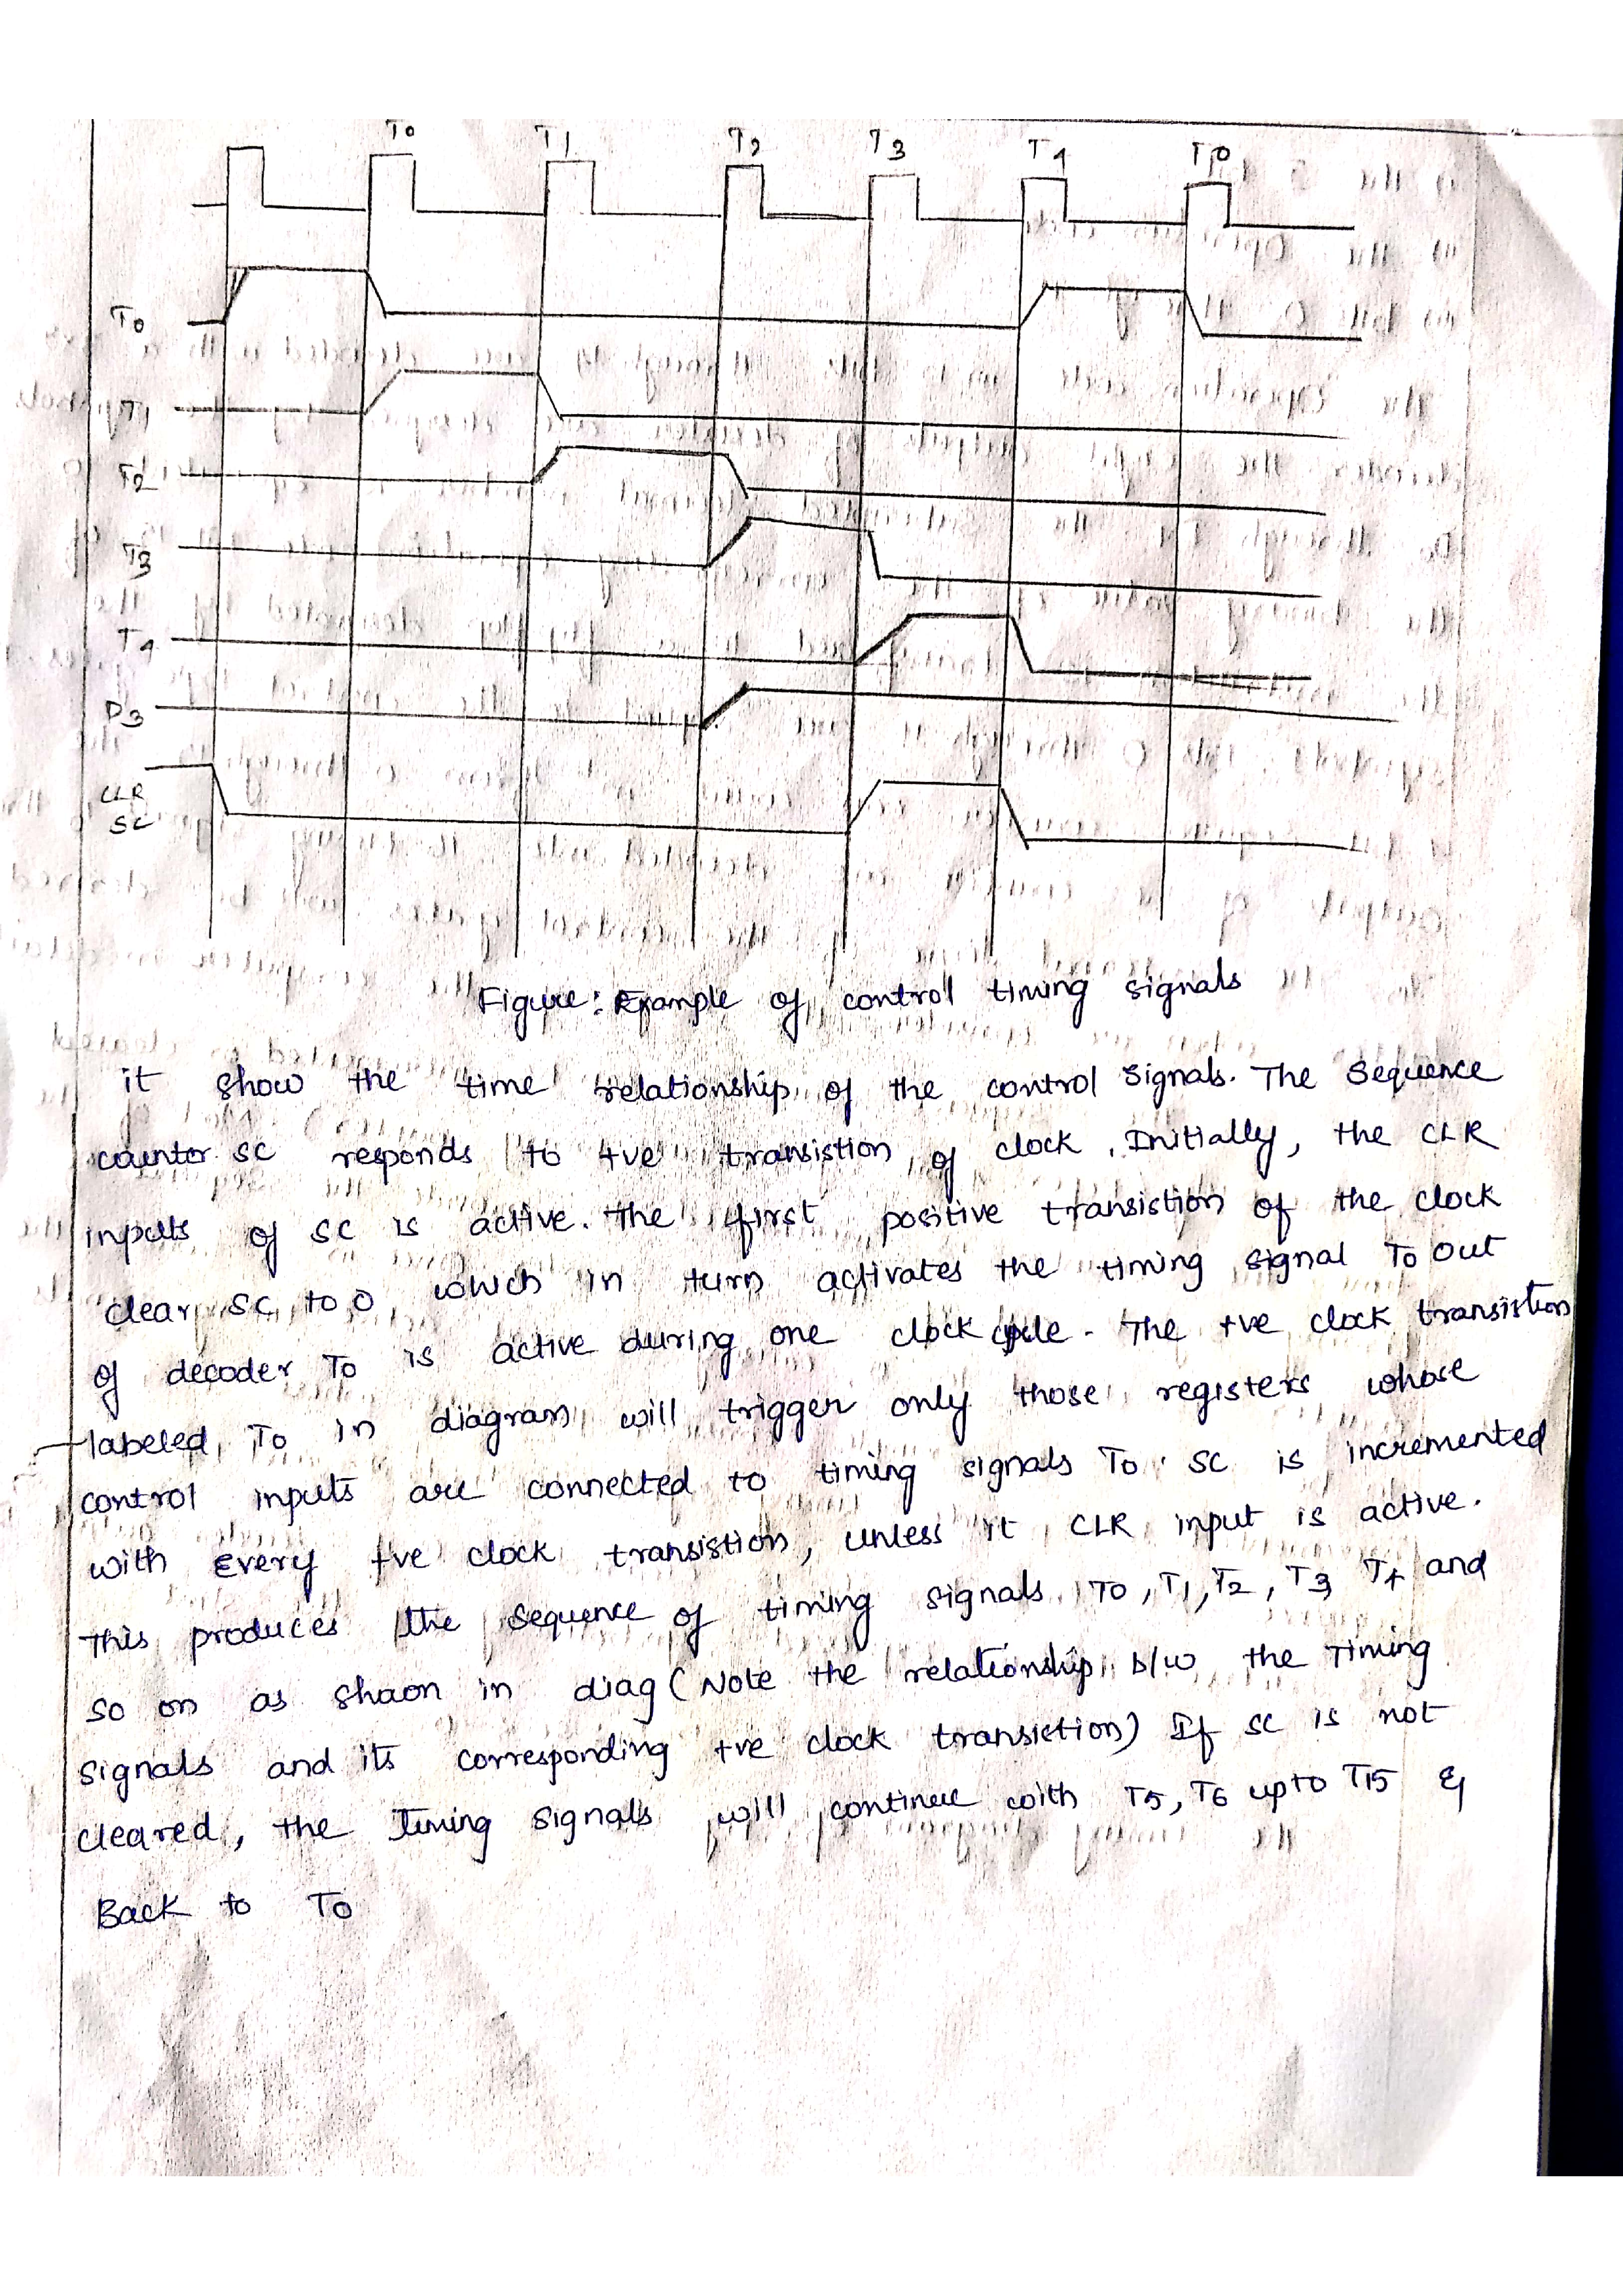 T0 T1 T2 T3 T4 T0
T0
T1
T2
T3
T4
D3
CLR
SC
Figure: Example of control timing signals
it show the time relationship of the control signals. The Sequence
counter SC responds to +ve transistion of clock. Initially, the CLR
inputs of SC is active. The first positive transistion of the clock
clear SC to 0 which in turn activates the timing signal To out
of decoder To is active during one clock cycle. The +ve clock transistion
labeled To in diagram will trigger only those registers whose
control inputs are connected to timing signals To. SC is incremented
with every +ve clock transistion, unless it CLR input is active.
This produces the sequence of timing signals To, T1, T2, T3 T4 and
so on as shaon in diag (Note the relationship b/w the Timing
signals and its corresponding +ve clock transiction) If SC is not
cleared, the Timing signals will continue with T5, T6 upto T15 &
Back to To